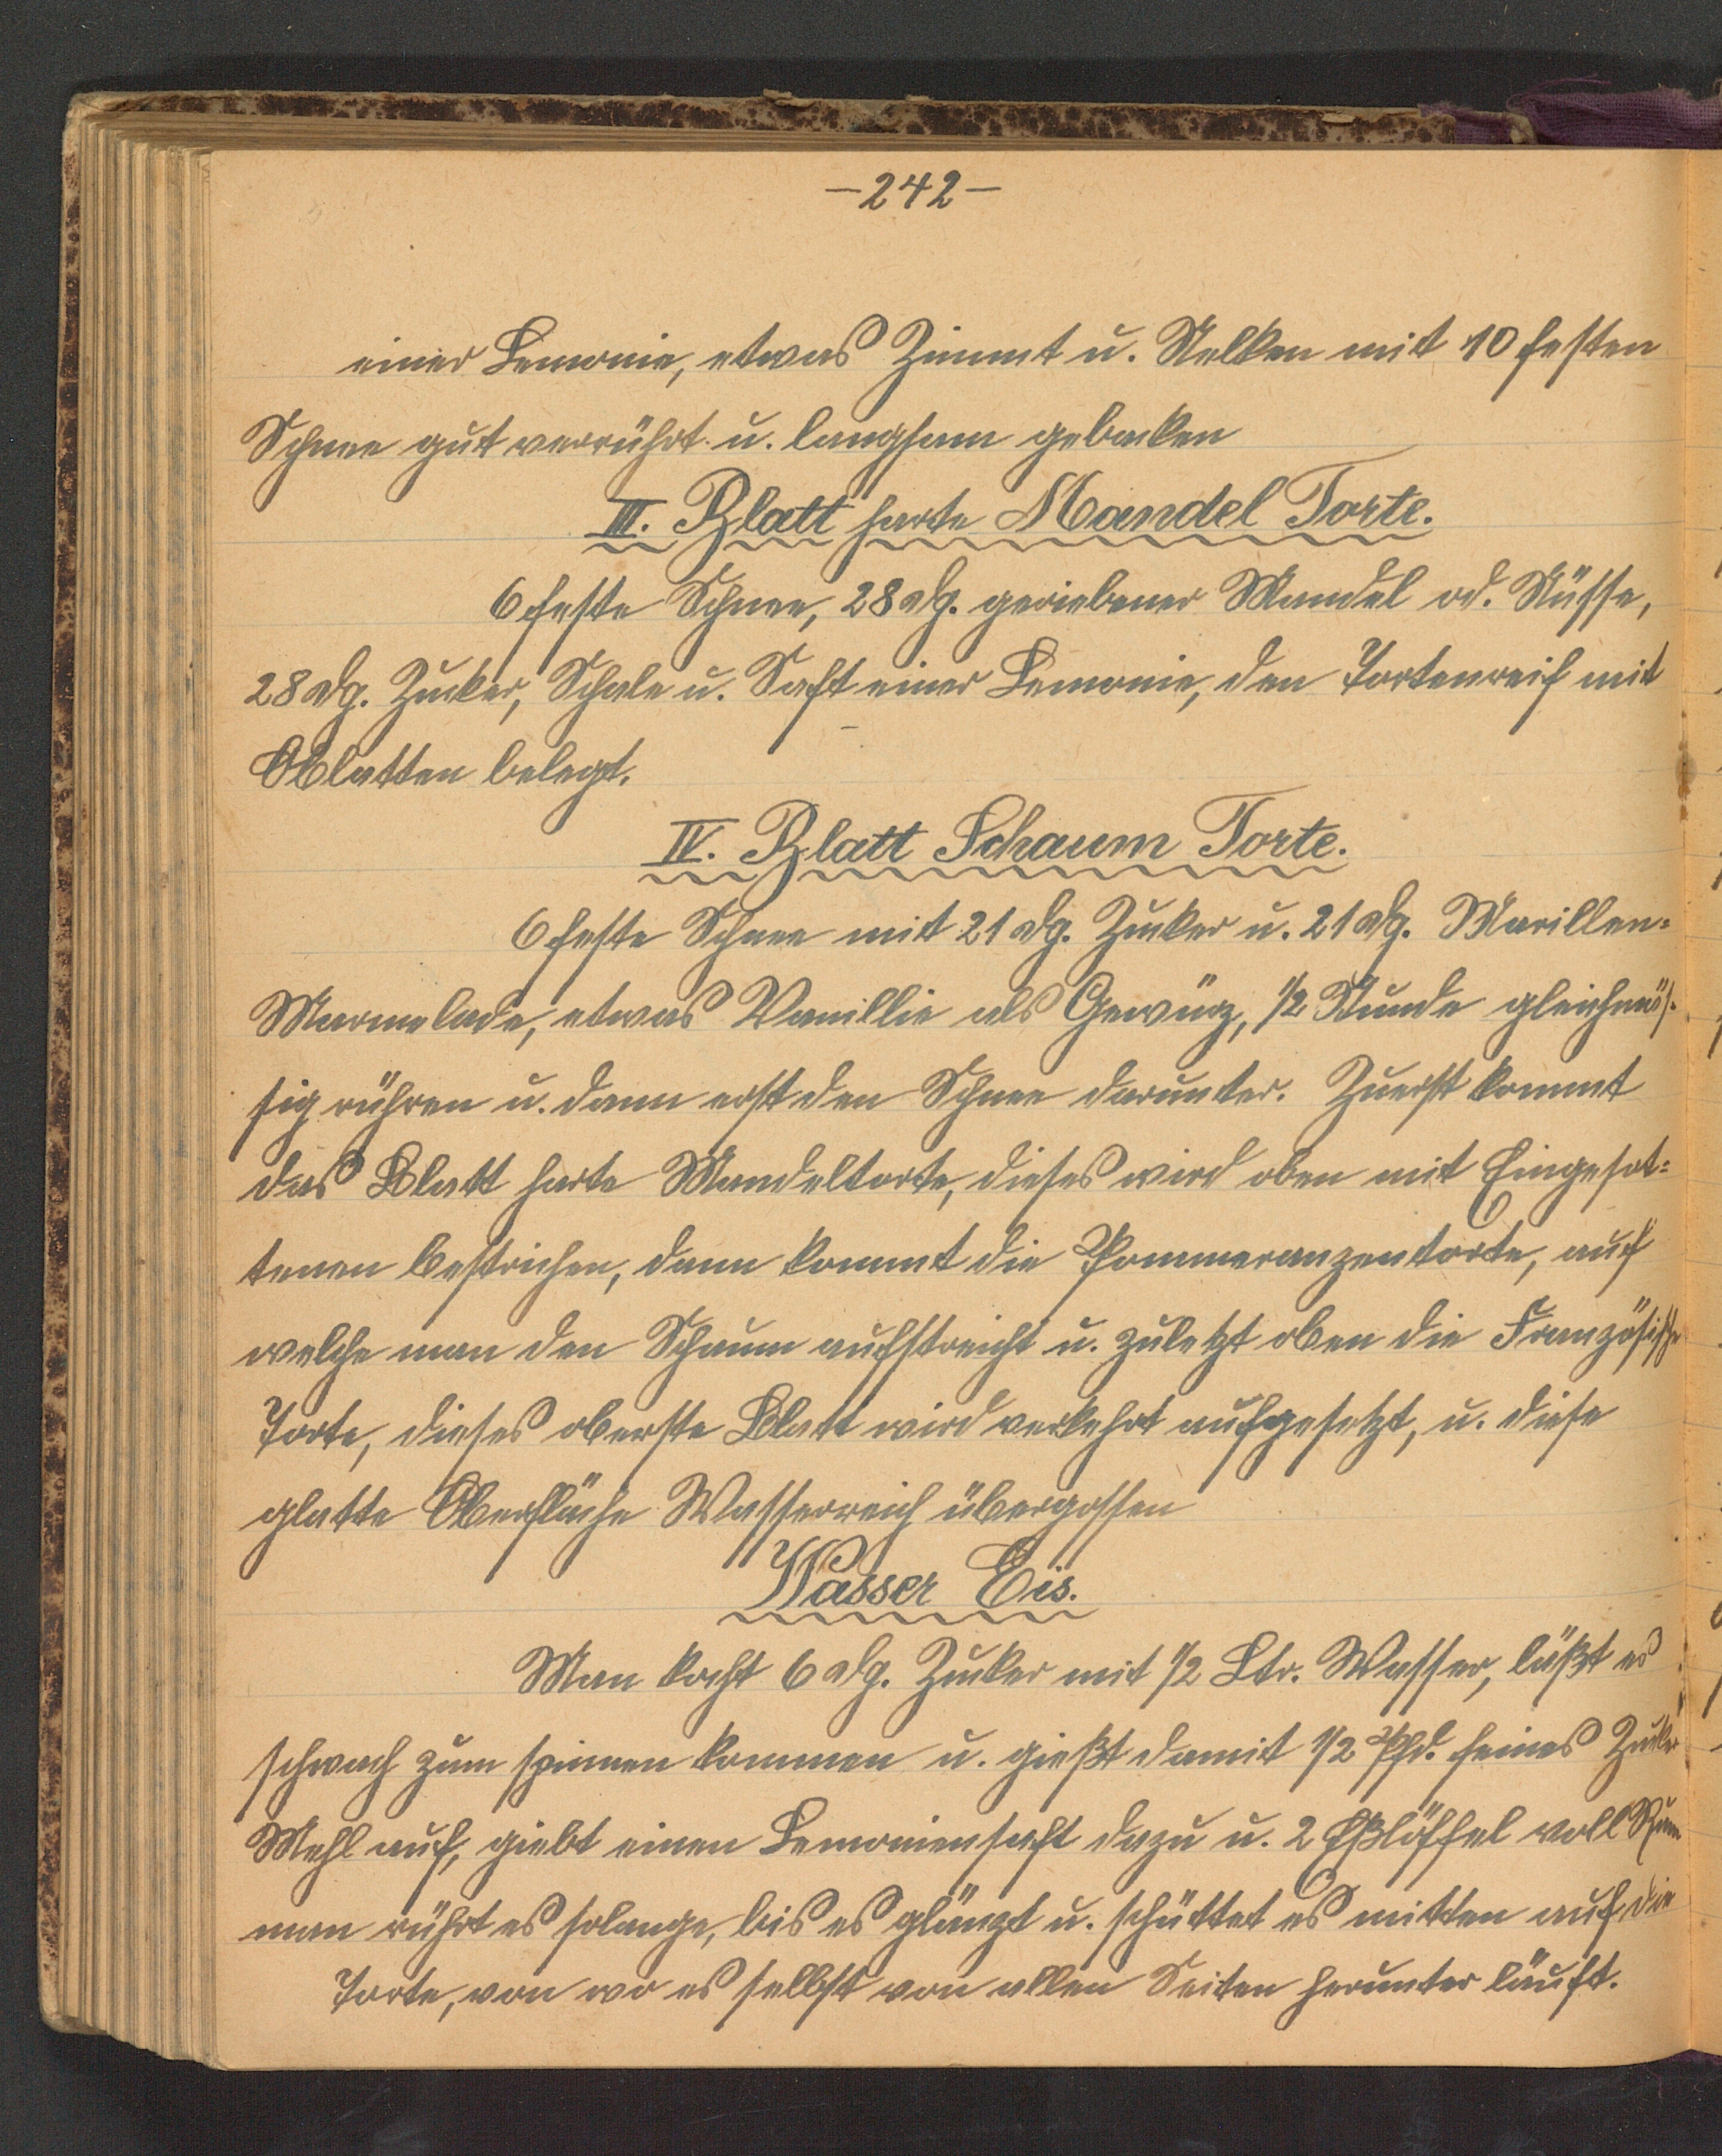 —242—
einer Lemonie, etwas Zimmt u. Nelken mit 10 festen
Schnee gut verrührt u. langsam gebacken
III. Blatt harte Mandel Torte.
6 feste Schnee, 28 dg. geriebener Mandel od. Nüsse,
28 dg. Zucker, Schale u. Saft einer Lemonie, den Tortenreif mit
Oblatten belegt.
IV. Blatt Schaum Torte.
6 feste Schnee mit 21 dg. Zucker u. 21 dg. Marillen=
Marmelade, etwas Vanillie als Gewürz, 1/2 Stunde gleichmäs=
sig rühren u. dann erst den Schnee darunter. Zuerst kommt
das Blatt harte Mandeltorte, dieses wird oben mit Eingesot=
tenen bestrichen, dann kommt die Pommeranzentorte, auf
welche man den Schaum aufstreicht u. zuletzt oben die Französische
Torte, dieses oberste Blatt wird verkehrt aufgesetzt, u. diese
glatte Oberfläche Wasserreich übergossen
Wasser Eis.
Man kocht 6 dg. Zucker mit 1/2 Ltr. Wasser, läßt es
schwach zum spinnen kommen u. gießt damit 1/2 Pfd. feines Zucker
Mehl auf, giebt einen Lemoniensaft dazu u. 2 Eßlöffel voll Rum
man rührt es solange, bis es glänzt u. schüttet es mitten auf die
Torte, von wo es selbst von allen Seiten herunter läuft.